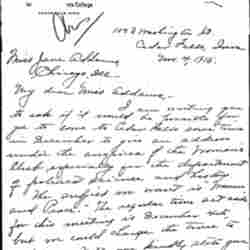 rs College
1103 Washington St.
Cedar Falls, Iowa
Nov. 4, 1915.
Miss Jane Addams,
Chicago Ill.
My dear Miss Addams:
I am writing you
to ask if it would be possible for
you to come to Cedar Falls some time
in December to give an address
under the auspices of the Woman's
Club
of political science and history
The subject we want is "Women
and Peace." The regular time set aside
for this meeting is December
but we could change the time to